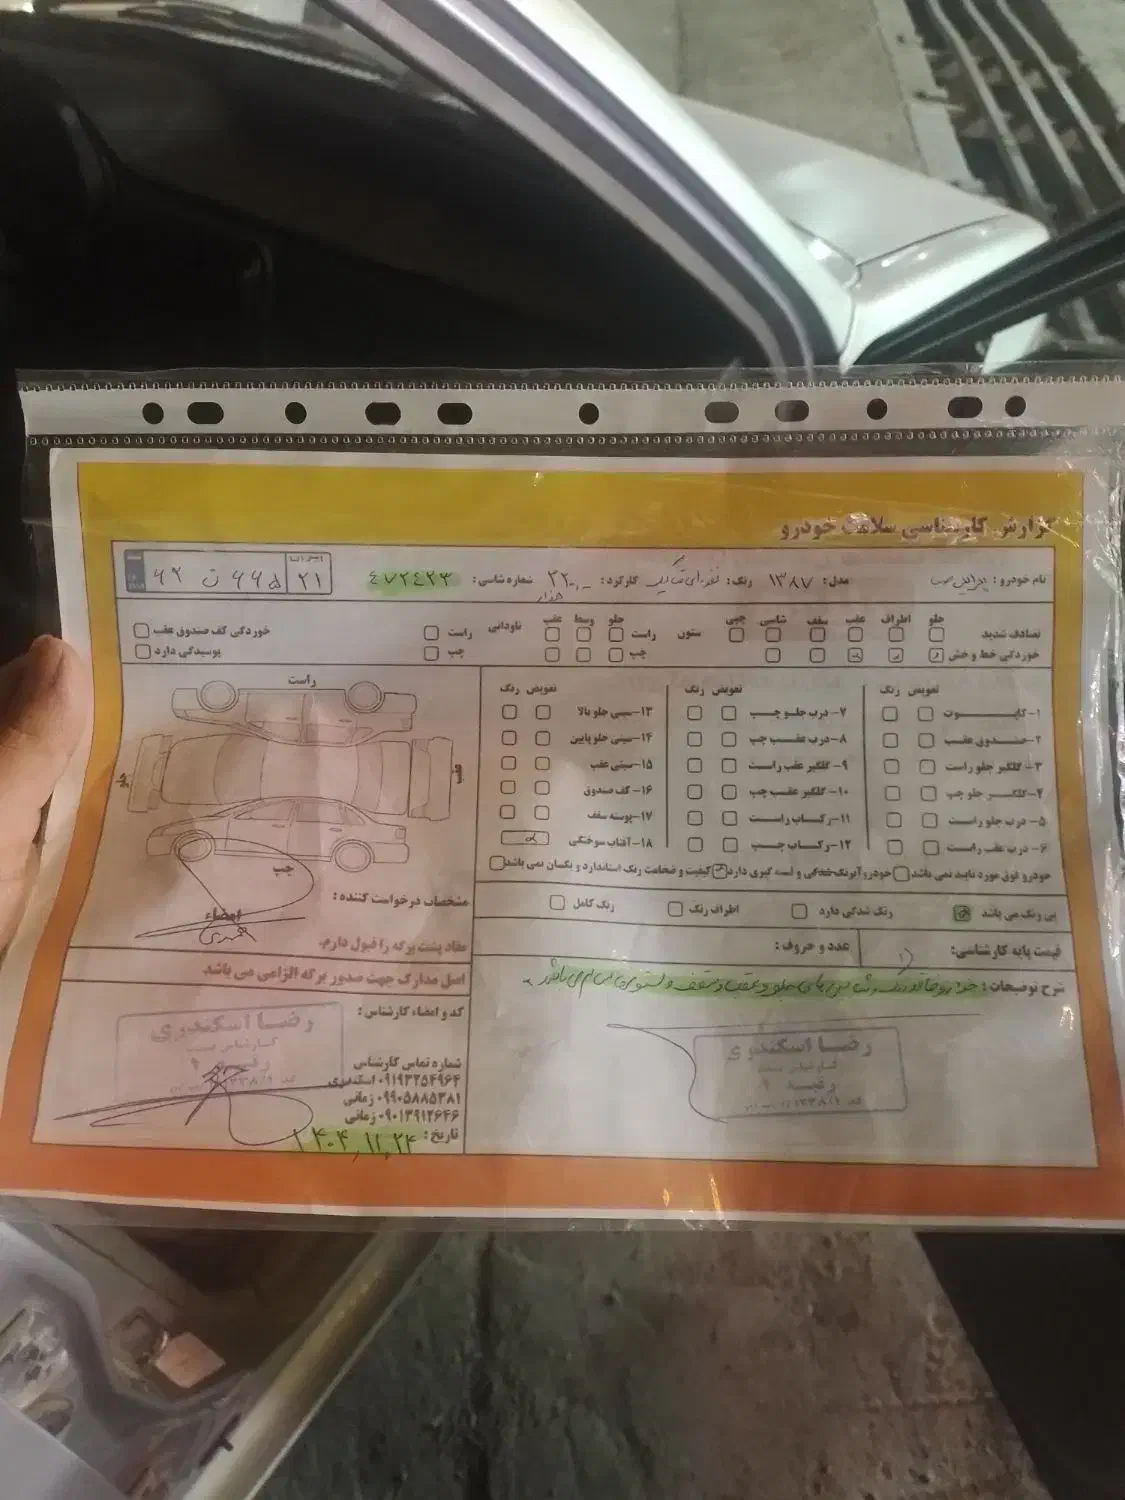 گزارش کارشناسی سلامت خودرو
نام خودرو: مدل: ۱۳۸۷ رنگ: نقره‌ای کارکرد: ۲۲۰,۰۰۰ هزار شماره شاسی: ۴۷۲۴۲۳
ایران ۲۱ ۶۲ ت ۶۶۵
تصادف شدید جلو اطراف عقب سقف شاسی جیبی ستون راست جلو وسط عقب ناودانی راست خوردگی کف صندوق عقب
خوردگی خط و خش چپ چپ پوسیدگی دارد
تعویض رنگ تعویض رنگ تعویض رنگ
۱-کاپوت ۷-درب جلو چپ ۱۳-سینی جلو بالا
۲-صندوق عقب ۸-درب عقب چپ ۱۴-سینی جلو پایین
۳-گلگیر جلو راست ۹-گلگیر عقب راست ۱۵-سینی عقب
۴-گلگیر جلو چپ ۱۰-گلگیر عقب چپ ۱۶-کف صندوق
۵-درب جلو راست ۱۱-رکاب راست ۱۷-پوسته سقف
۶-درب عقب راست ۱۲-رکاب چپ ۱۸-آفتاب سوختگی
خودرو فوق مورد تایید نمی باشد خودرو آبرنگ شدگی و لیسه گیری دارد کیفیت و ضخامت رنگ استاندارد و یکسان نمی باشد
بی رنگ می باشد رنگ شدگی دارد اطراف رنگ رنگ کامل
قیمت پایه کارشناسی: عدد و حروف:
شرح توضیحات: خودرو فاقد رنگ و شاسی های جلو و عقب و سقف و ستون ها سالم می باشد
رضا اسکندری
راست
جلو
عقب
چپ
مشخصات درخواست کننده:
امضاء
مفاد پشت برگه را قبول دارم.
اصل مدارک جهت صدور برگه الزامی می باشد
کد و امضاء کارشناس:
رضا اسکندری
شماره تماس کارشناس
۰۹۱۹۳۲۵۴۹۶۴ اسکندری
۰۹۹۰۵۸۸۵۳۸۱ زمانی
۰۹۰۱۳۹۱۲۶۴۶ زمانی
تاریخ: ۱۴۰۴,۱۱,۲۴